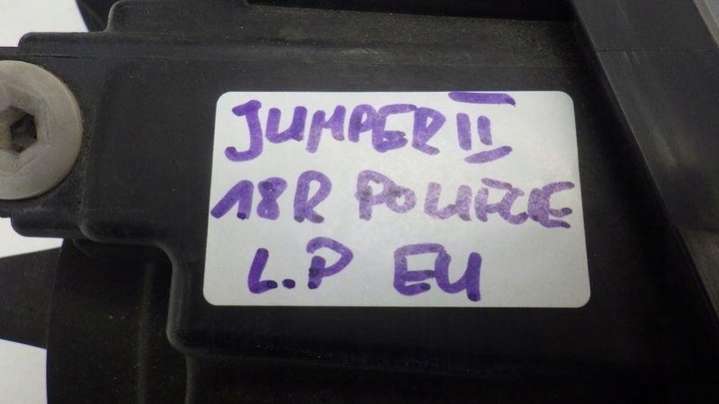 JUMPER II
18R POLIFCIE
L.P EU